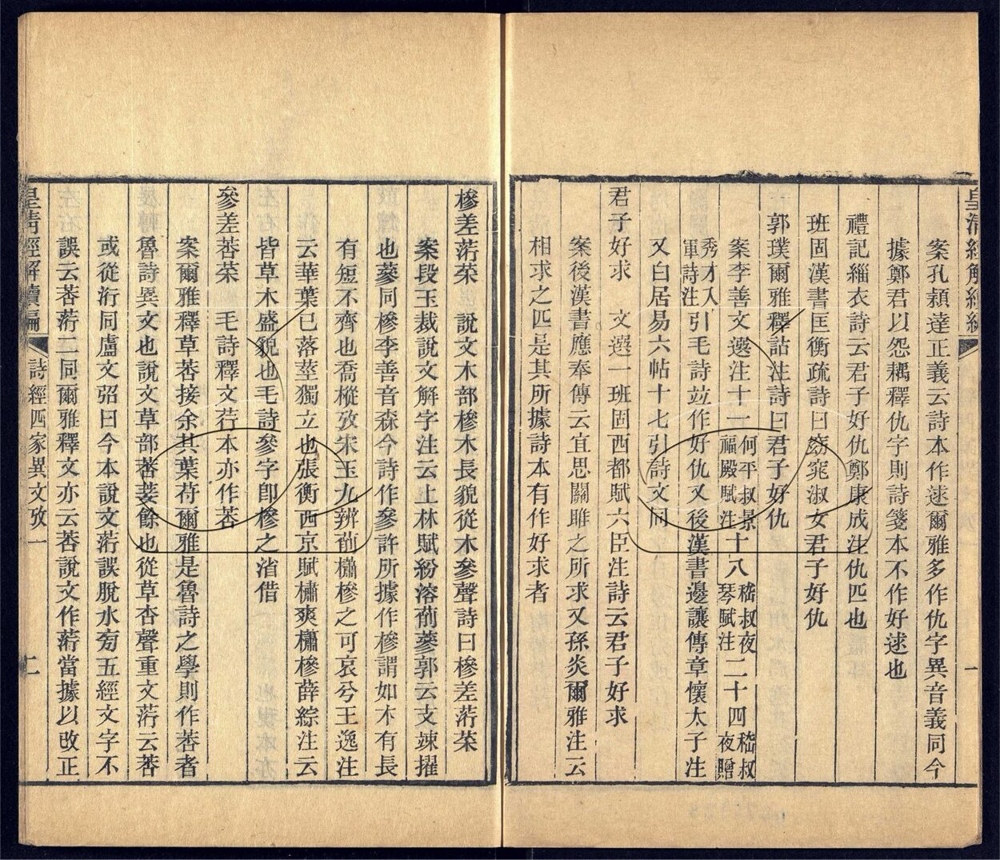 皇清經解續編
一
案孔穎達正義云詩本作逑爾雅多作仇字異音義同今
據鄭君以怨耦釋仇字則詩箋本不作好逑也
禮記緇衣詩云君子好仇鄭康成注仇匹也
班固漢書匡衡疏詩曰窈窕淑女君子好仇
郭璞爾雅釋詁注詩曰君子好仇
案李善文選注十一何平叔景福殿賦注十八嵇叔夜琴賦注二十四嵇叔夜贈
秀才入軍詩注引毛詩竝作好仇又後漢書邊讓傳章懷太子注
又白居易六帖十七引詩文同
君子好求 文選一班固西都賦六臣注詩云君子好求
案後漢書應奉傳云宜思關雎之所求又孫炎爾雅注云
相求之匹是其所據詩本有作好求者
槮差荇菜 說文木部槮木長貌從木參聲詩曰槮差荇菜
案段玉裁說文解字注云上林賦紛溶萷蔘郭云支竦擢
也蔘同槮李善音森今詩作參許所據作槮謂如木有長
有短不齊也喬樅攷宋玉九辨萷櫹槮之可哀兮王逸注
云華葉已落莖獨立也張衡西京賦橚爽櫹槮薛綜注云
皆草木盛貌也毛詩參字卽槮之渻借
參差莕菜 毛詩釋文荇本亦作莕
案爾雅釋草莕接余其葉苻爾雅是魯詩之學則作莕者
魯詩異文也說文草部莕菨餘也從草杏聲重文荇云莕
或從洐同盧文弨曰今本說文荇誤脫水㫄五經文字不
誤云莕荇二同爾雅釋文亦云莕說文作荇當據以改正
皇淸經解續編
詩經四家異文攷一
二